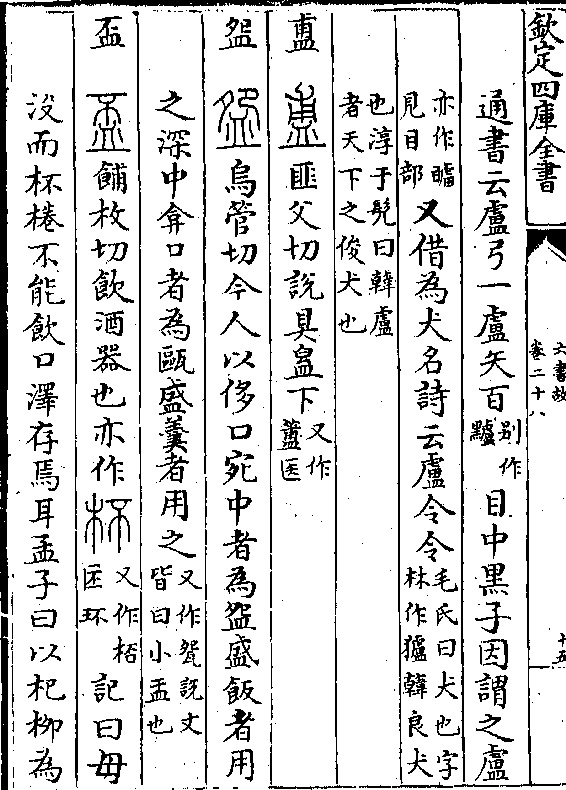 欽定四庫全書
六書故
卷二十八
十五
通書云盧弓一盧矢百别作黸目中黒子因謂之盧
亦作矑見目部又借為犬名詩云盧令令毛氏曰犬也字林作獹韓良犬
也淳于髠曰韓盧者天下之俊犬也
匪父切説具盨下又作
烏管切今人以侈口宛中者為盌盛飯者用
之深中弇口者為甌盛羮者用之又作㼝説文皆曰小盂也
盃 餔枚切飲酒器也亦作 又作桮
記曰母
没而杯棬不能飲口澤存焉耳孟子曰以杞柳為